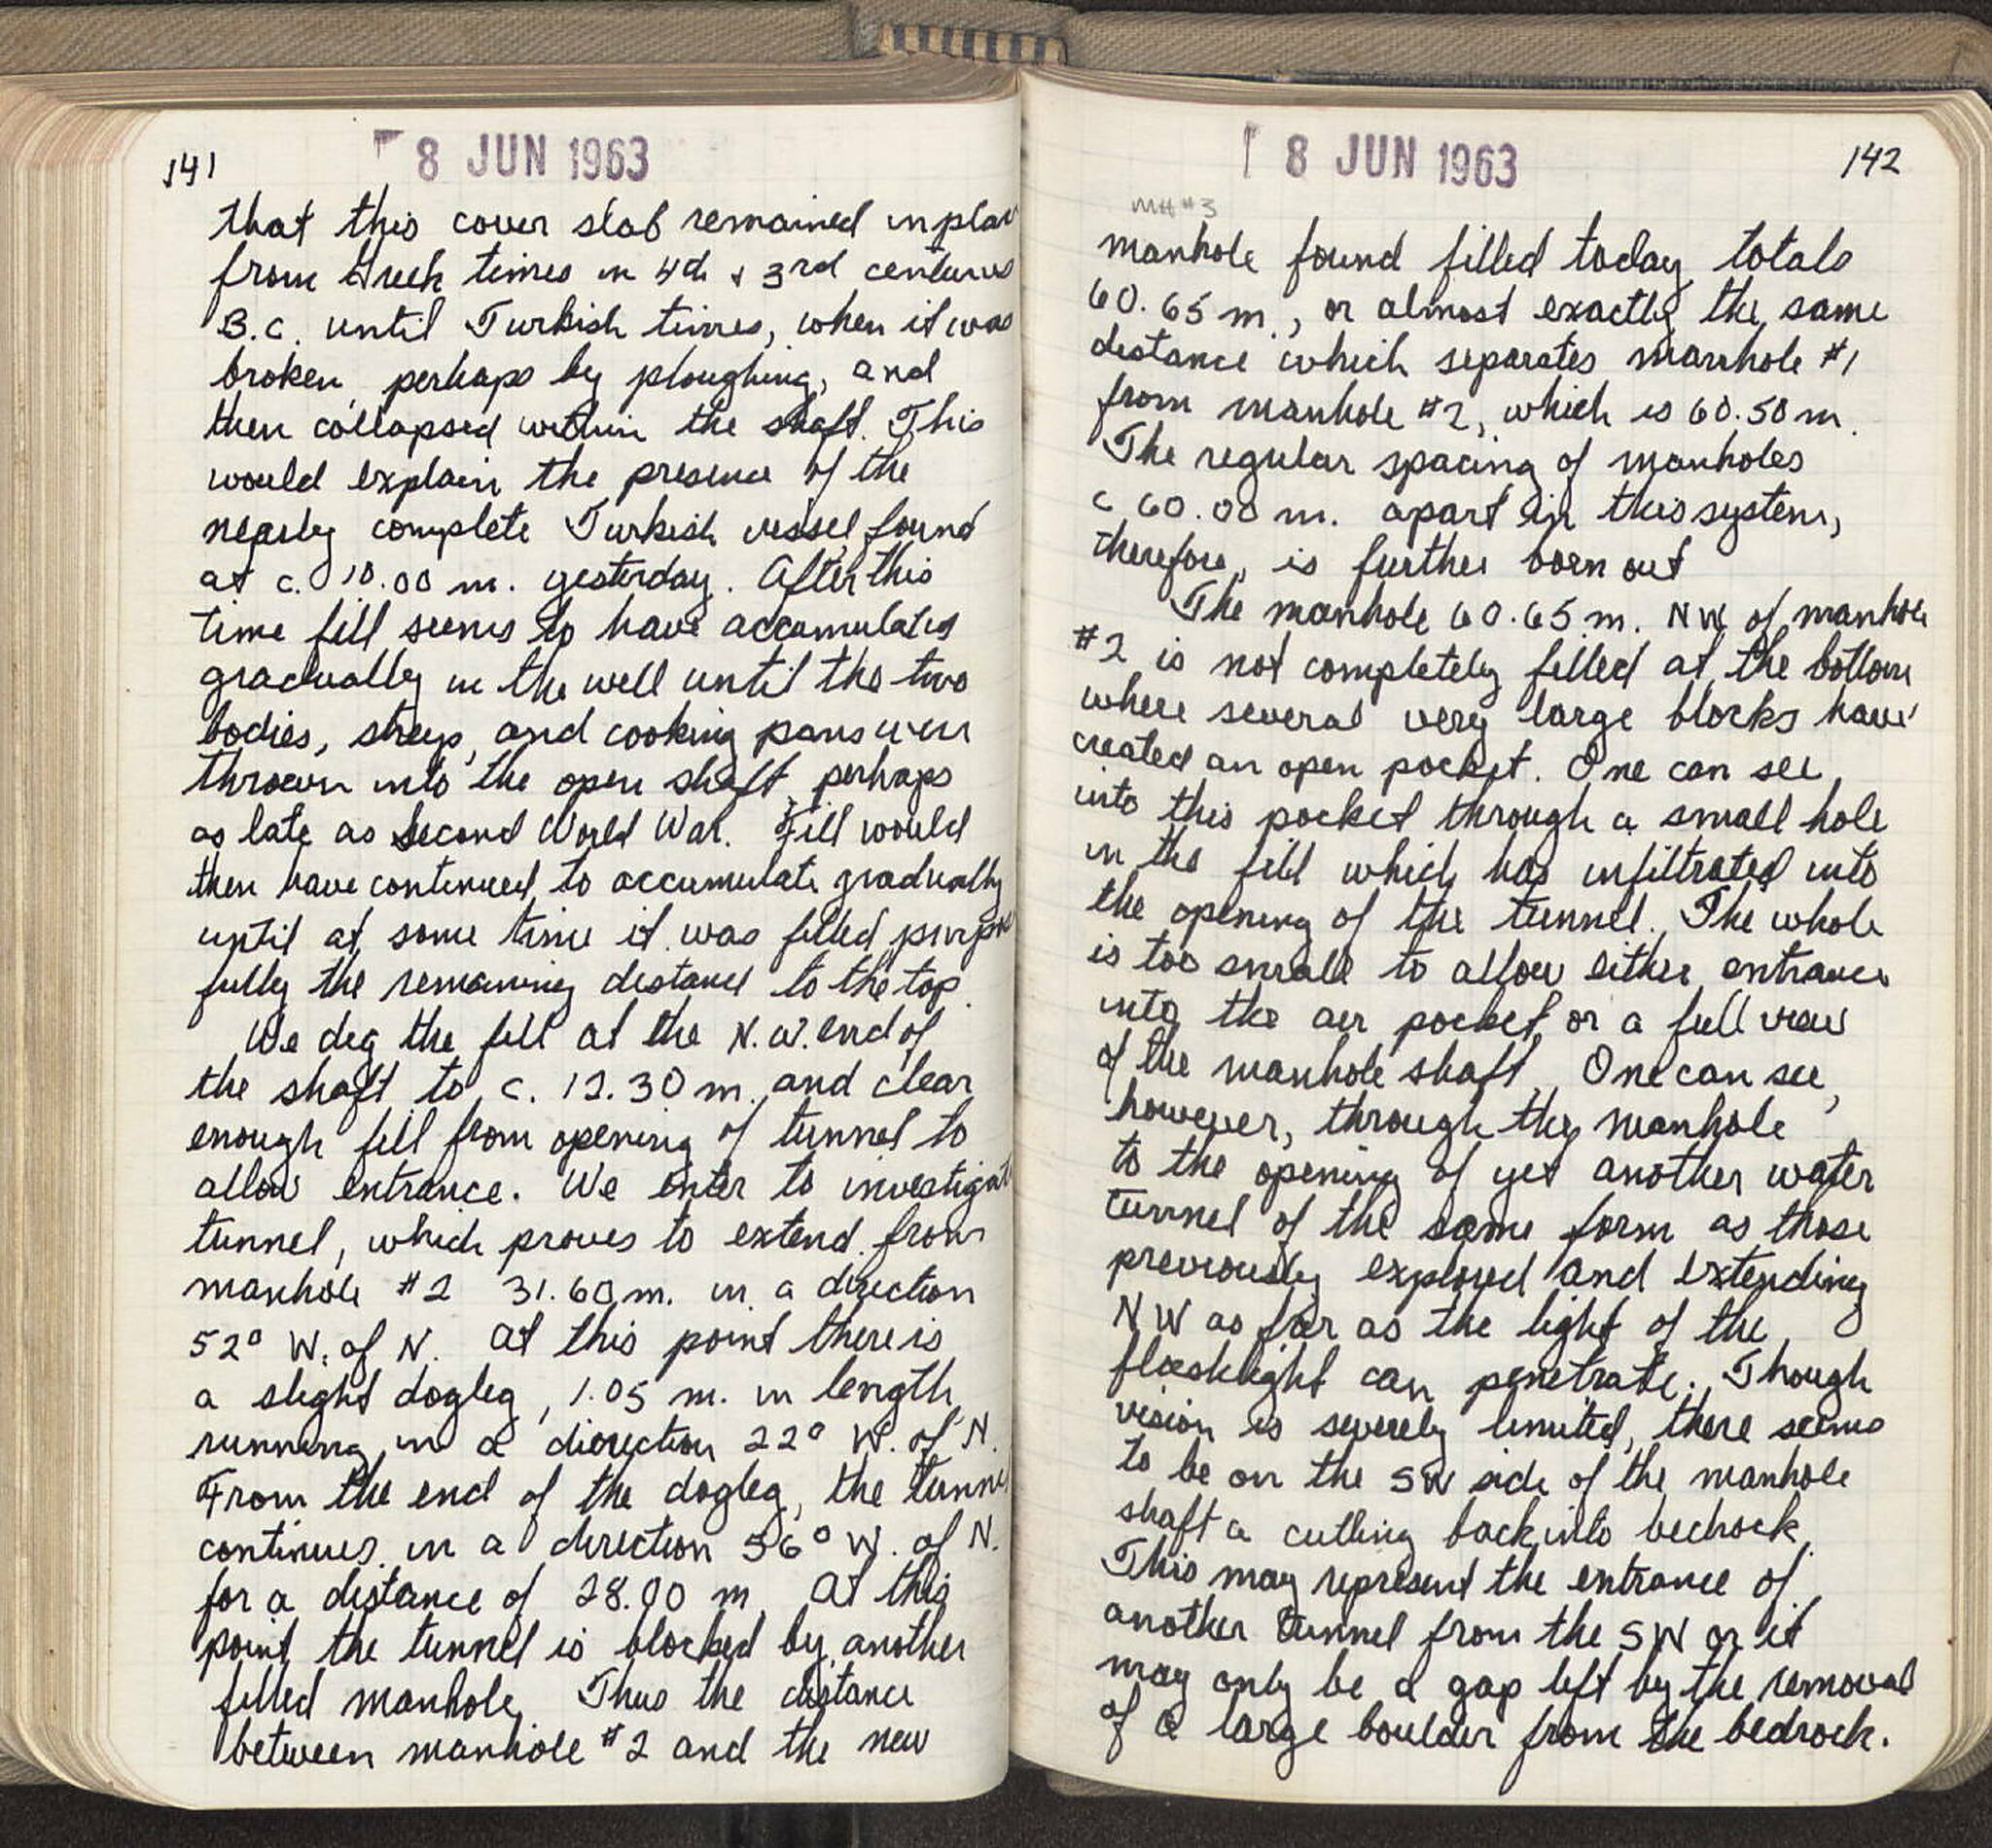 141
8 JUN 1963
that this cover slab remained in plac
from Greek times in 4th & 3rd centuries
B.C. until Turkish times, when it was
broken, perhaps by ploughing, and
then collapsed within the shaft. This
would explain the presence of the
nearly complete Turkish vessel found
at c. 10.00 m. yesterday. After this
time fill seems to have accumulated
gradually in the well until the two
bodies, sheep, and cooking pans were
thrown into the open shaft, perhaps
as late as Second World War. Fill would
then have continued to accumulate gradually
until at some time it was filled purpose
fully the remaining distance to the top.
We dig the fill at the N.W. end of
the shaft to c. 12.30 m. and clear
enough fill from opening of tunnel to
allow entrance. We enter to investigate
tunnel, which proves to extend from
manhole #2 31.60 m. in a direction
52° W. of N. At this point there is
a slight dogleg, 1.05 m. in length
running in a direction 22° W. of N.
From the end of the dogleg, the tunnel
continues in a direction 56° W. of N.
for a distance of 28.00 m. At this
point the tunnel is blocked by another
filled manhole. Thus the distance
between manhole #2 and the new
8 JUN 1963
142
MH #3
manhole found filled today totals
60.65 m., or almost exactly the same
distance which separates manhole #1
from manhole #2, which is 60.50 m.
The regular spacing of manholes
c 60.00 m. apart in this system,
therefore, is further born out
The manhole 60.65 m. NW of manhole
#2 is not completely filled at the bottom
where several very large blocks have
created an open pocket. One can see
into this pocket through a small hole
in the fill which has infiltrated into
the opening of the tunnel. The whole
is too small to allow either entrance
into the air pocket or a full view
of the manhole shaft. One can see,
however, through the manhole
to the opening of yet another water
tunnel of the same form as those
previously explored and extending
NW as far as the light of the
flashlight can penetrate. Though
vision is severely limited, there seems
to be on the SW side of the manhole
shaft a cutting back into bedrock.
This may represent the entrance of
another tunnel from the SW or it
may only be a gap left by the removal
of a large boulder from the bedrock.